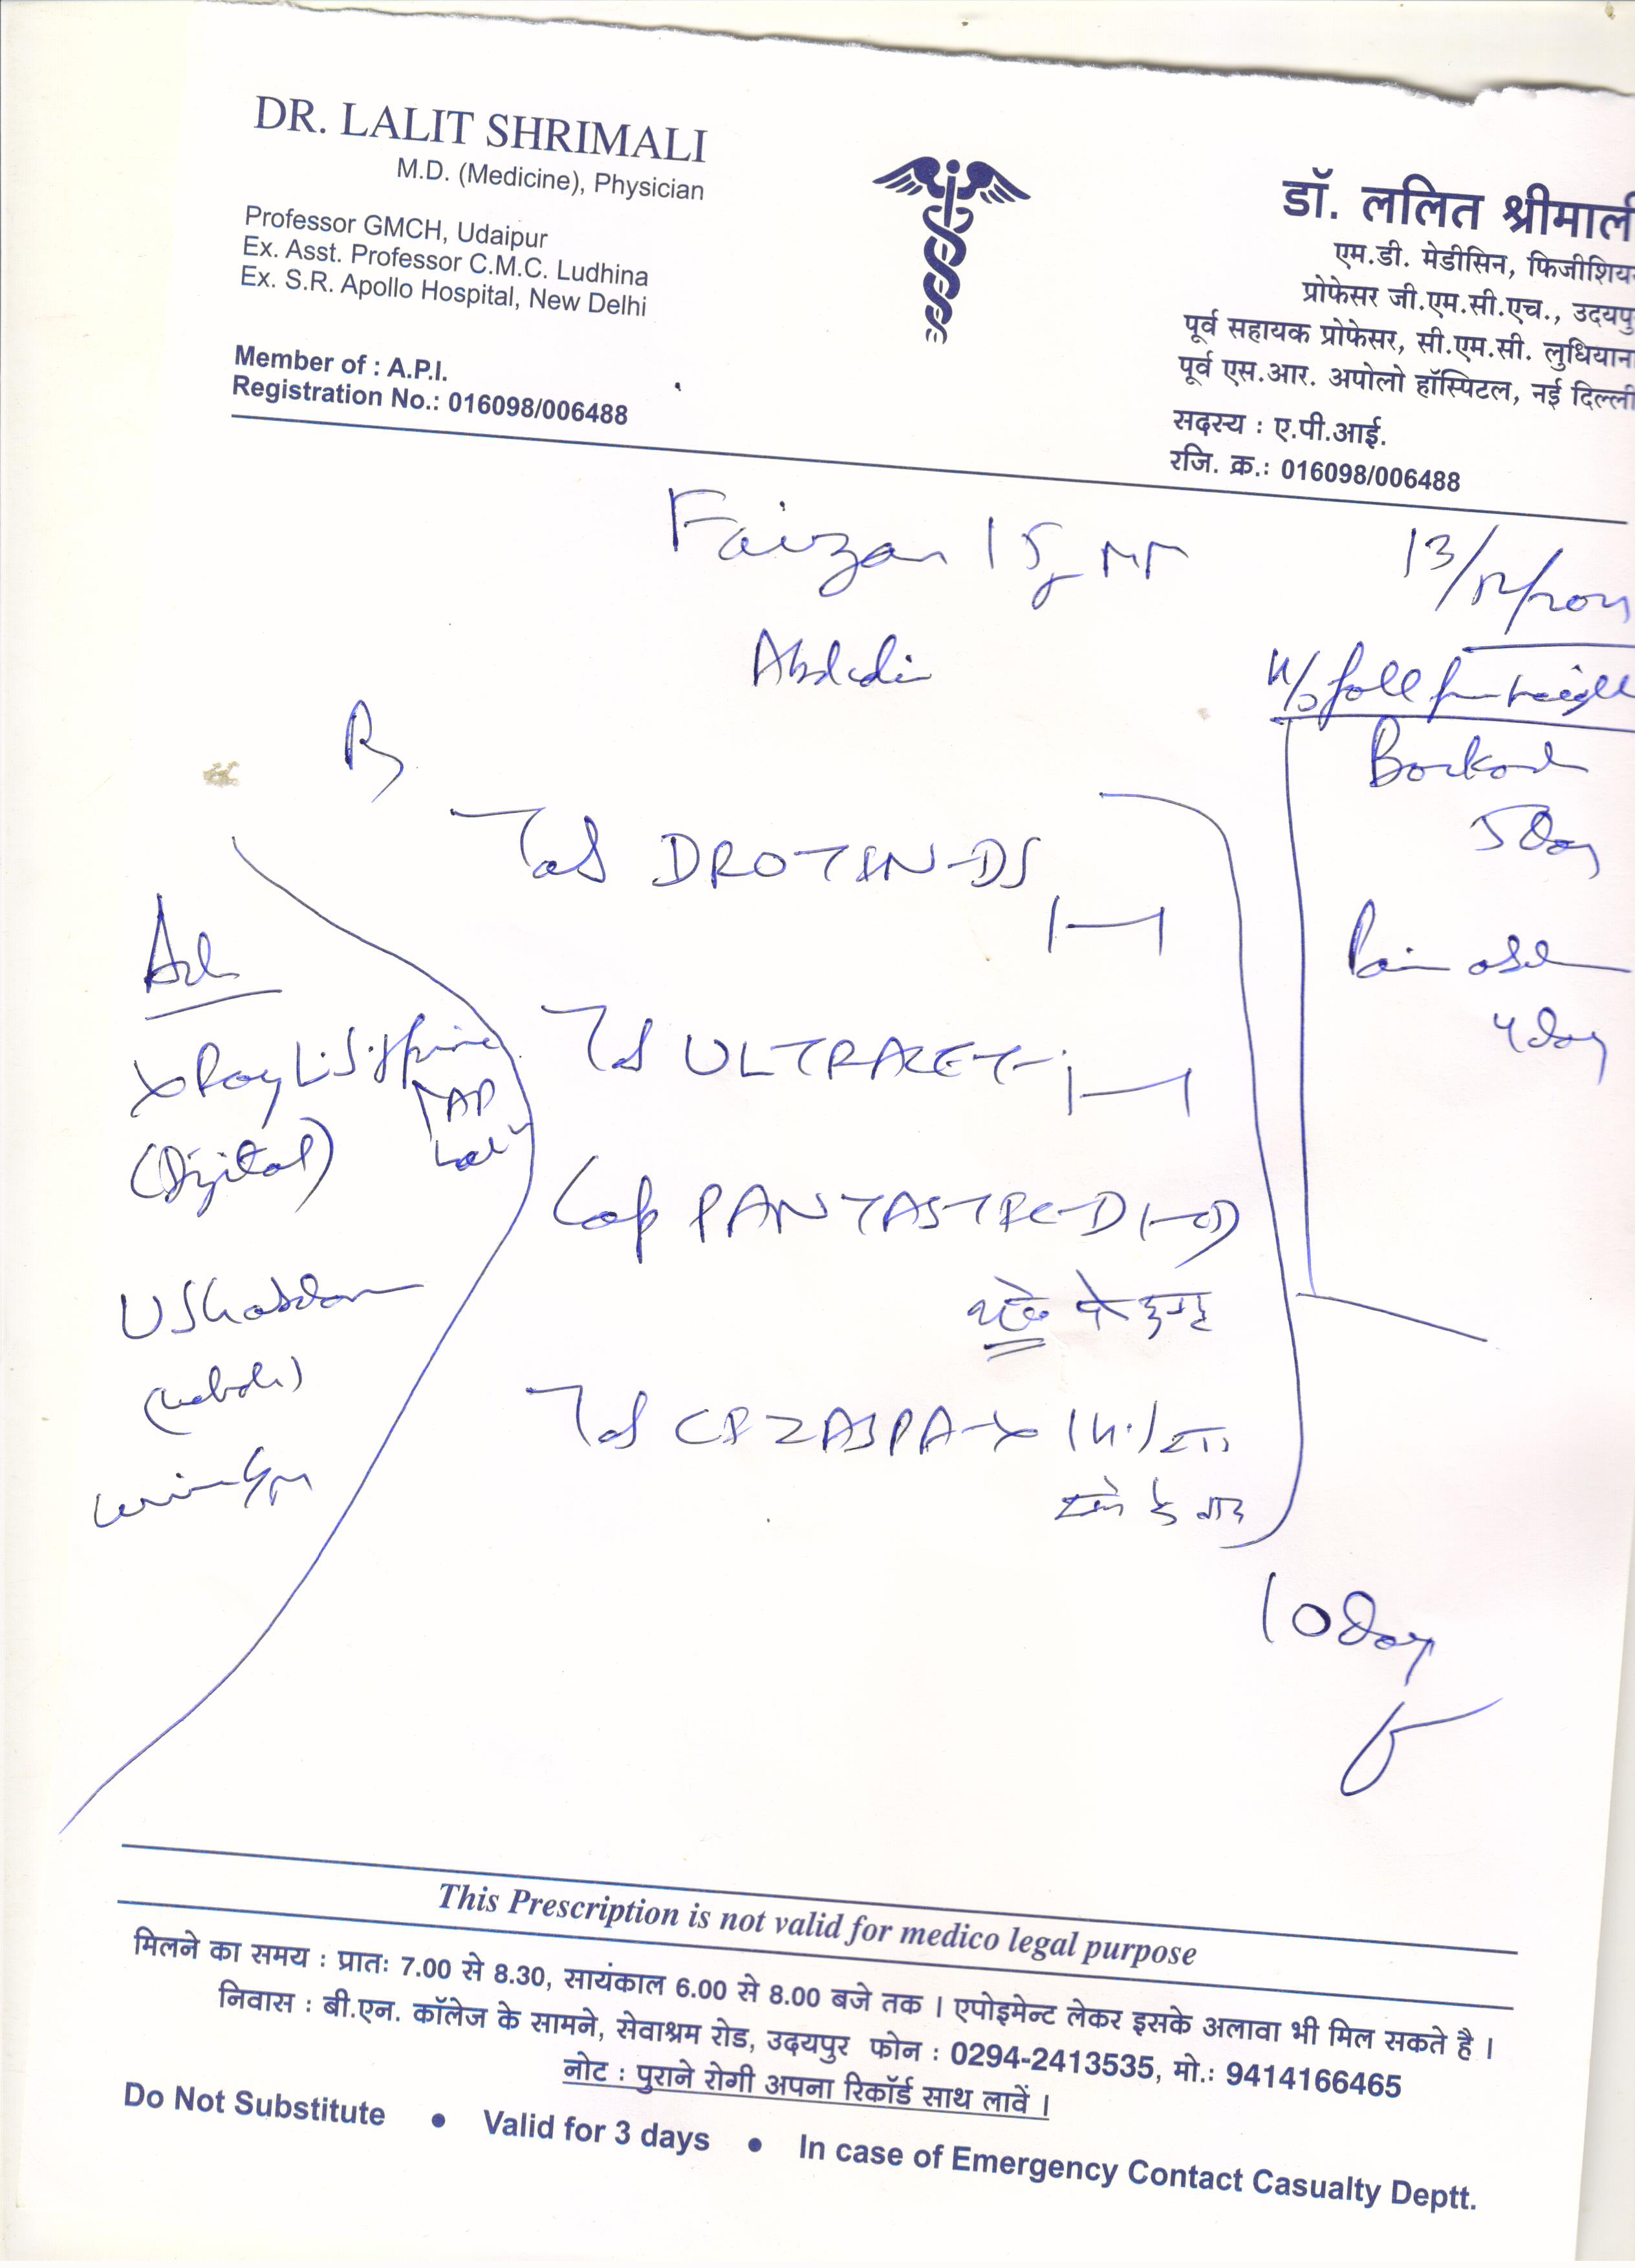 DR. LALIT SHRIMALI
M.D. (Medicine), Physician
Professor GMCH, Udaipur
Ex. Asst. Professor C.M.C. Ludhina
Ex. S.R. Apollo Hospital, New Delhi
Member of : A.P.I.
Registration No.: 016098/006488
डॉ. ललित श्रीमाल
एम.डी. मेडीसिन, फिजीशिय
प्रोफेसर जी.एम.सी.एच., उदयपु
पूर्व सहायक प्रोफेसर, सी.एम.सी. लुधियाना
पूर्व एस.आर. अपोलो हॉस्पिटल, नई दिल्ली
सदस्य : ए.पी.आई.
रजि. क्र.: 016098/006488
Faizan 15y
13/12/
H/o fall from
Backache
5 Day
Pain
4 day
Tab DROTIN-DS
1-1
Tab ULTRACET
1-1
Cap PANTASTRC-D
Tab 
के बाद
10 day
Adv
X Ray L.S. Spine
AP
Lat
(Digital)
US
This Prescription is not valid for medico legal purpose
मिलने का समय : प्रातः 7.00 से 8.30, सायंकाल 6.00 से 8.00 बजे तक । एपोइमेन्ट लेकर इसके अलावा भी मिल सकते है ।
निवास : बी.एन. कॉलेज के सामने, सेवाश्रम रोड, उदयपुर फोन : 0294-2413535, मो.: 9414166465
नोट : पुराने रोगी अपना रिकॉर्ड साथ लावें ।
Do Not Substitute • Valid for 3 days • In case of Emergency Contact Casualty Deptt.